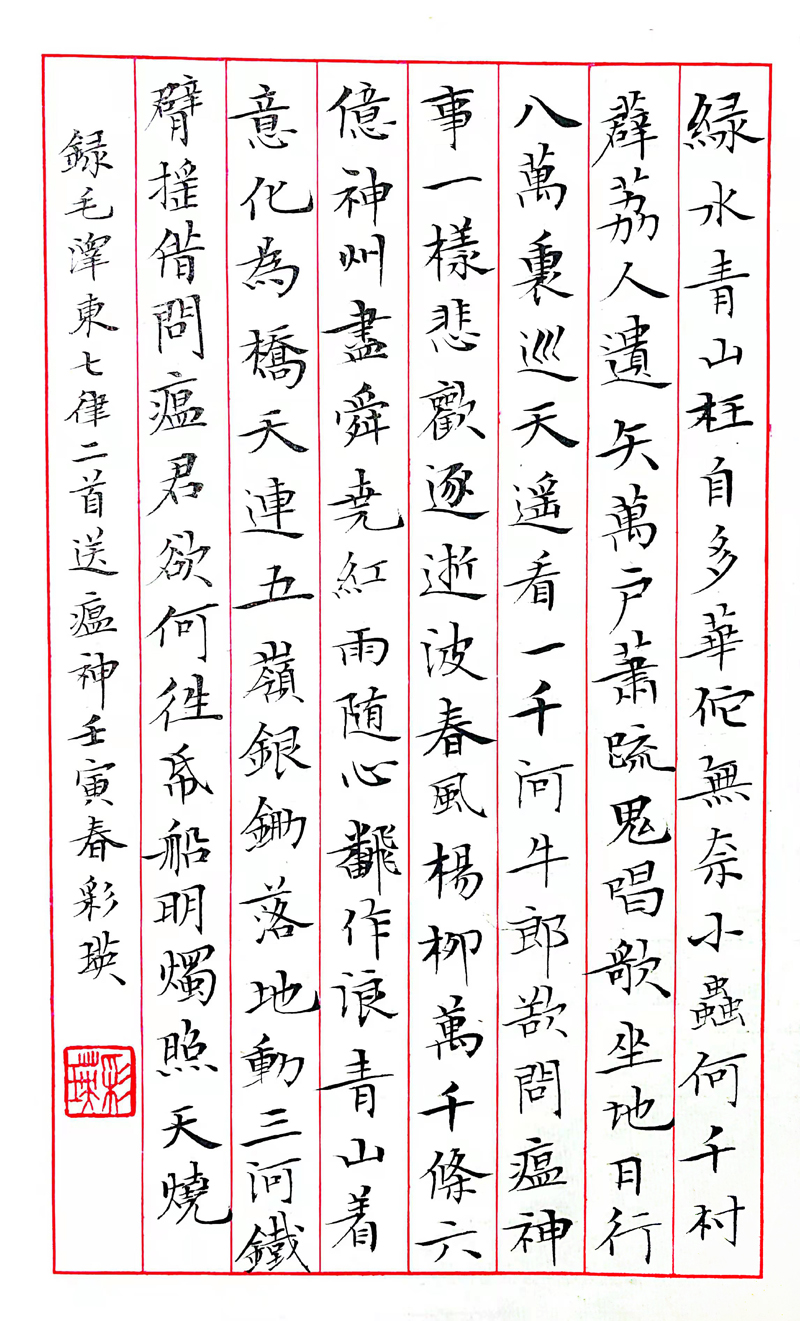 緑水青山枉自多華佗無奈小蟲何千村
薜荔人遺矢萬户蕭疏鬼唱歌坐地日行
八萬裏巡天遥看一千河牛郎欲問瘟神
事一樣悲歡逐逝波春風楊柳萬千條六
億神州盡舜尭紅雨随心飜作浪青山着
意化為橋天連五嶺銀鋤落地動三河鐵
臂摇借問瘟君欲何往帋船明燭照天燒
録毛澤東七律二首送瘟神壬寅春彩瑛
彩瑛